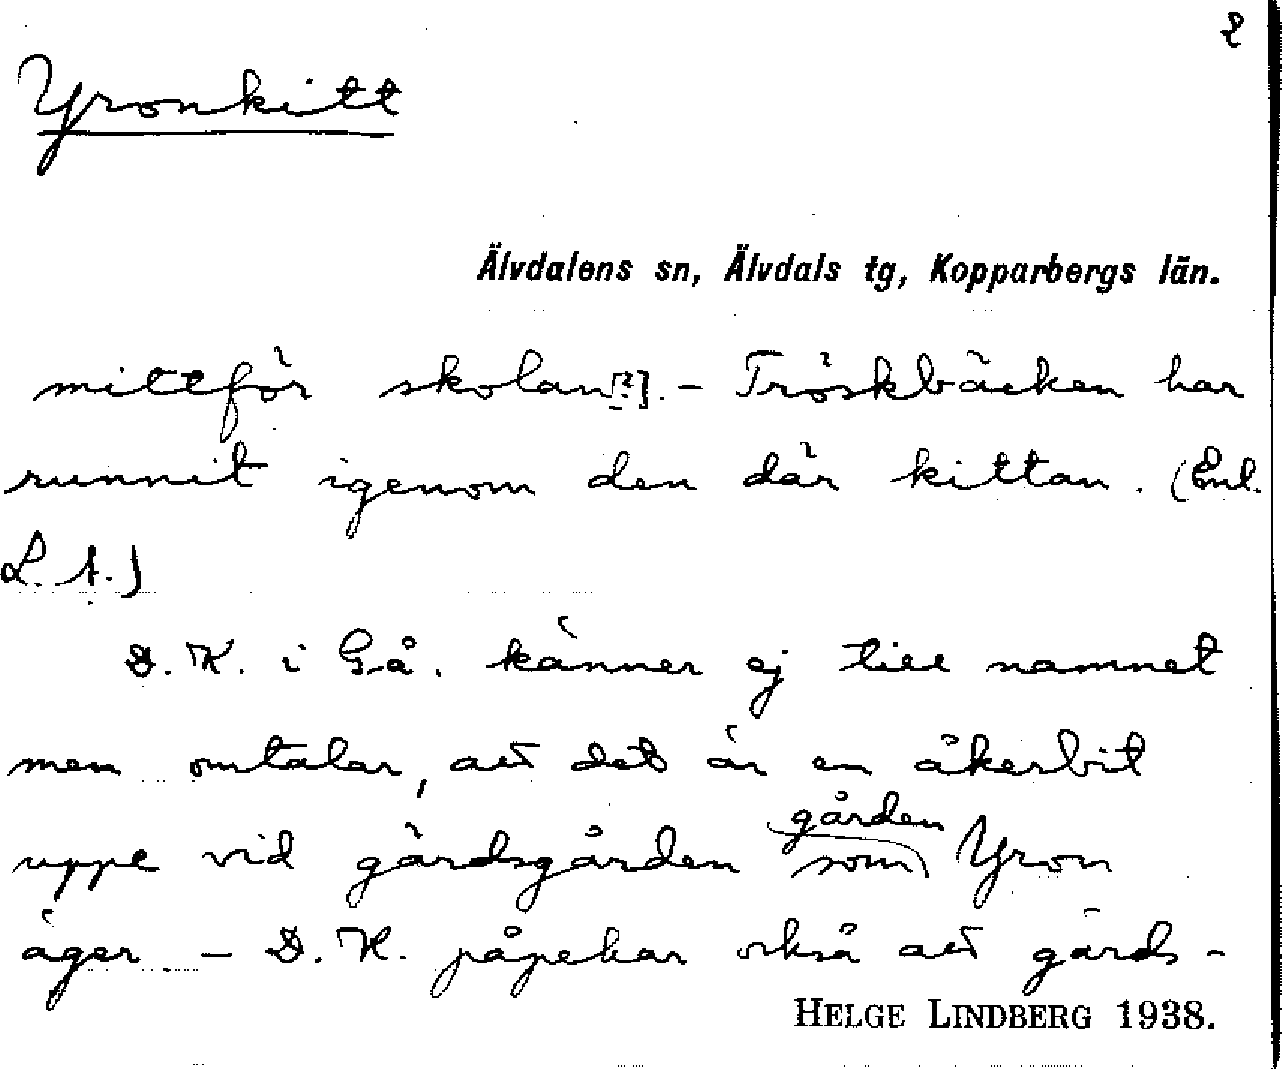 2
Yronkitt
Älvdalens sn, Älvdals tg, Kopparbergs län.
mittför skolan[?]. – Tröskbäcken har
runnit igenom den där kittan. (Enl.
L. A.)
D. K. i Gå. känner ej till namnet
men omtalar, att det är en åkerbit
uppe vid gärdsgården som gården Yron
äger – D. K. påpekar också att gärds-
HELGE LINDBERG 1938.